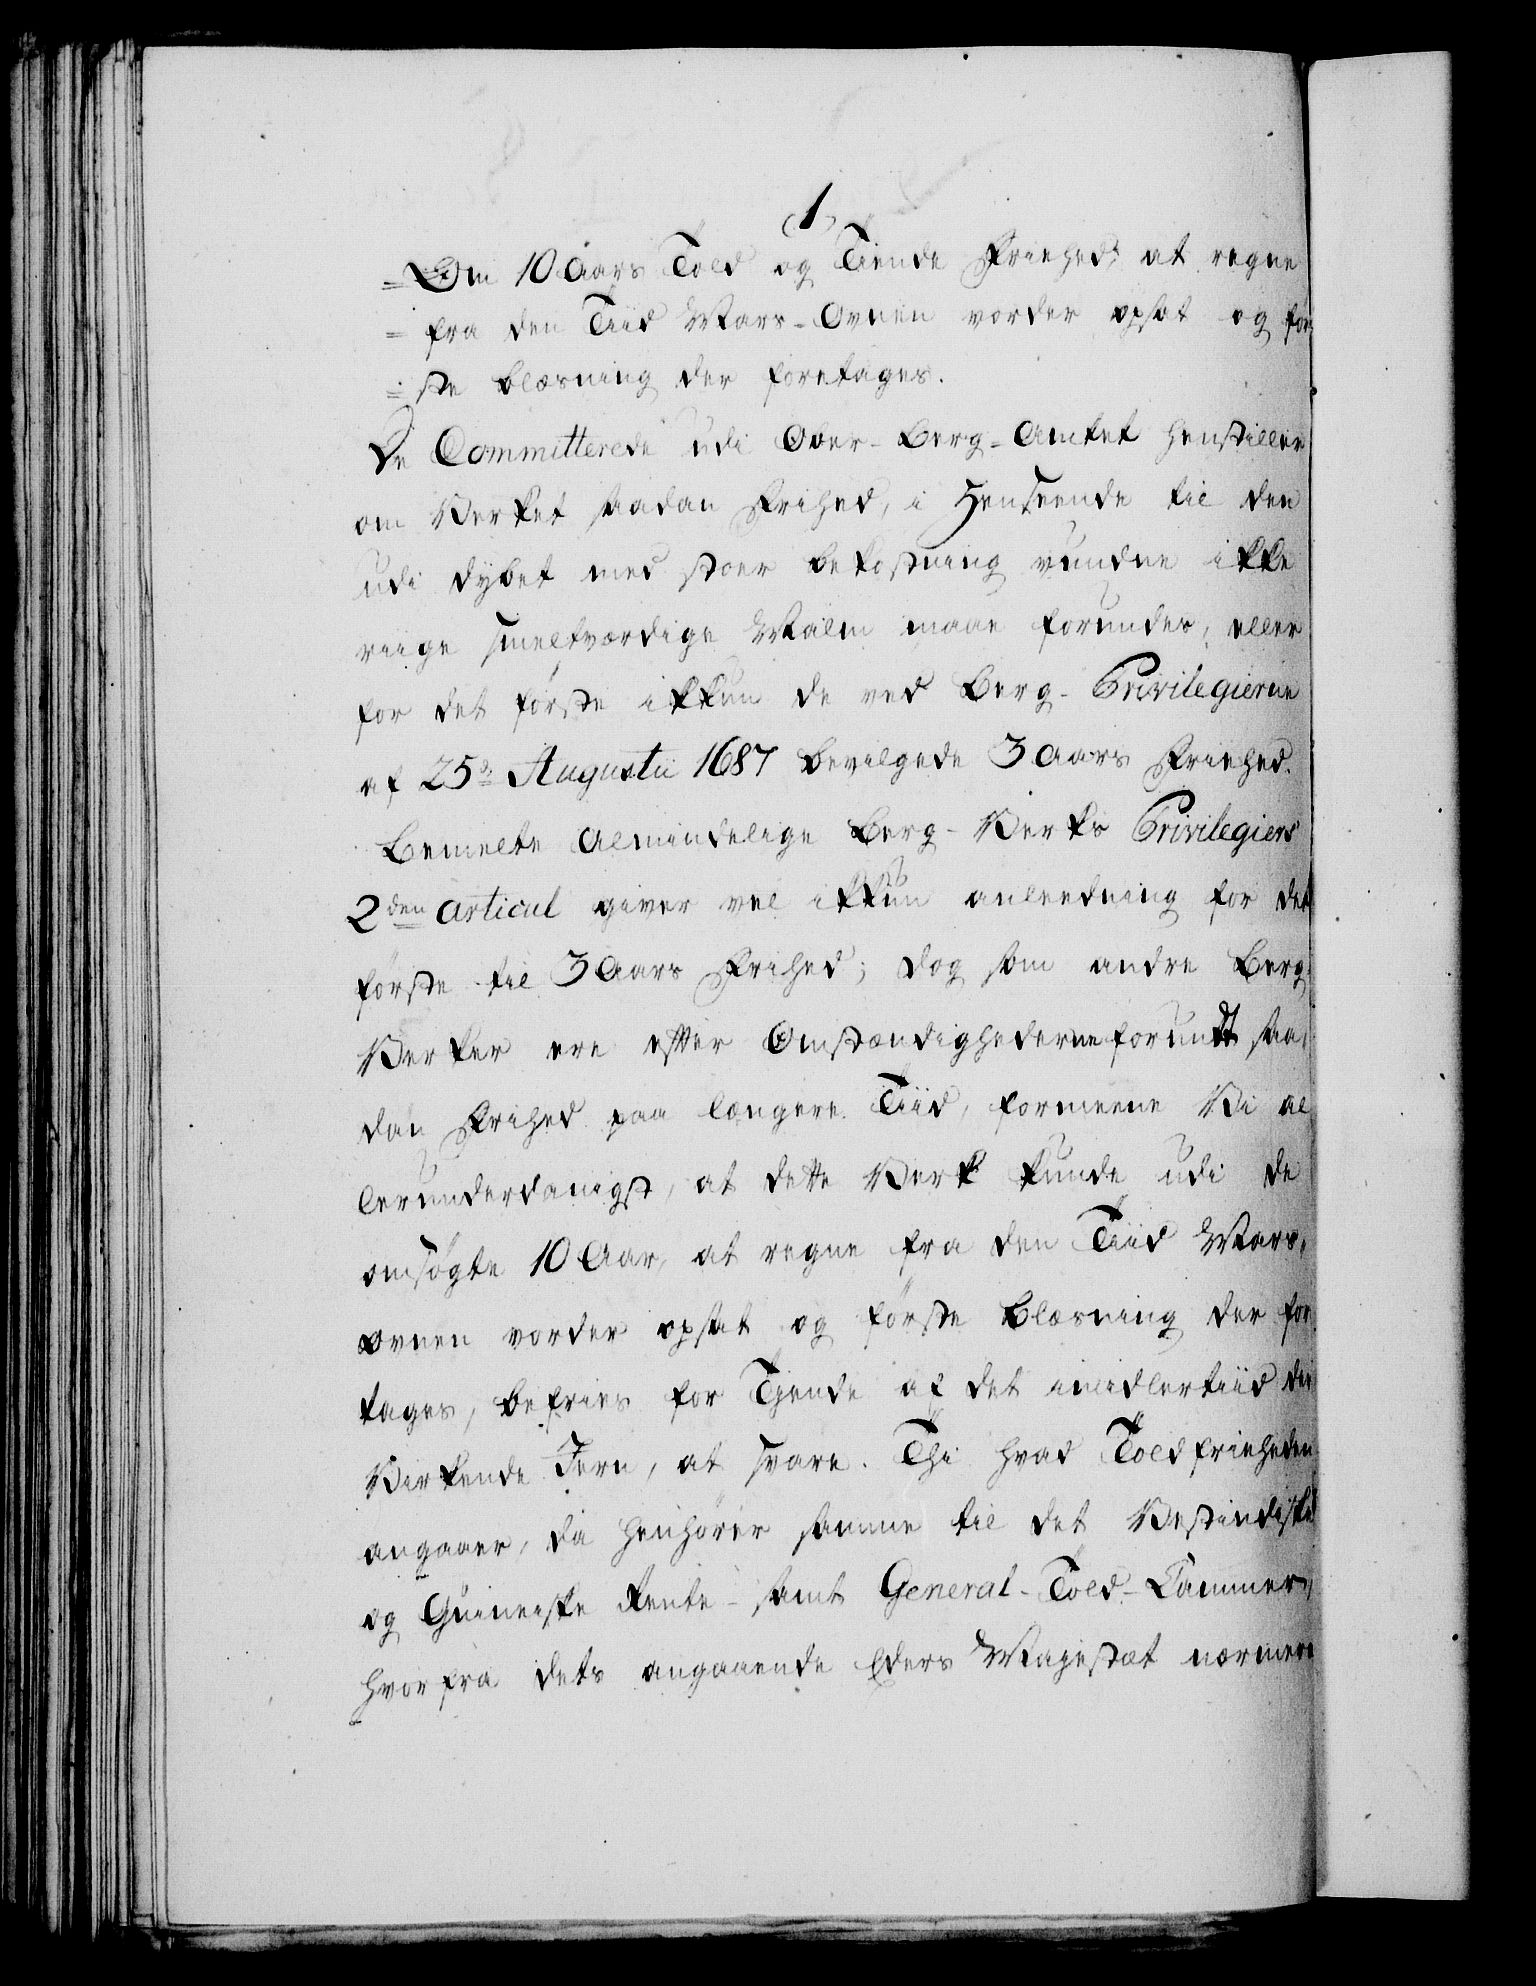 (1)
= Om 10 Aars Told og Tiende Friehed, at regne
= fra den Tiid Mars-Ovnen vorder opsat og før
= ste blæsning der foretages.
De Committerede udi Ober-Berg-Amtet henstiller
om Verket saadan Frihed, i Henseende til den
udi dybet med stoer bekostning vundne ikke
riige smeltværdige Malm maae forundes, eller
for det første ikkun de ved Berg-Privilegierne
af 25de Augustii 1687 bevilgede 3 Aars Friehed.
Bemelte Almindelige Berg-Verks Privilegiers
2den Articul giver vel ikkun anleedning for det
første til 3 Aars Frihed; dog som andre Berg-
Verker ere efter Omstændighederne forundt saa,
dan Frihed paa længere Tiid, formeene Vi al
lerunderdanigst, at dette Verk kunde udi de
omsøgte 10 Aar, at regne fra den Tiid Mars,
ovnen vorder opsat og første blæsning der for
tages, befries for Tjende af det imidlertiid der
Virkende Jern, at svare. Thi hvad Toldfrieheden
angaaer, da henhører samme til det Vestindiske
og Guineiske Rente- samt General-Told-Cammer,
hvorfra dets angaaende Eders Majestæt nærmere